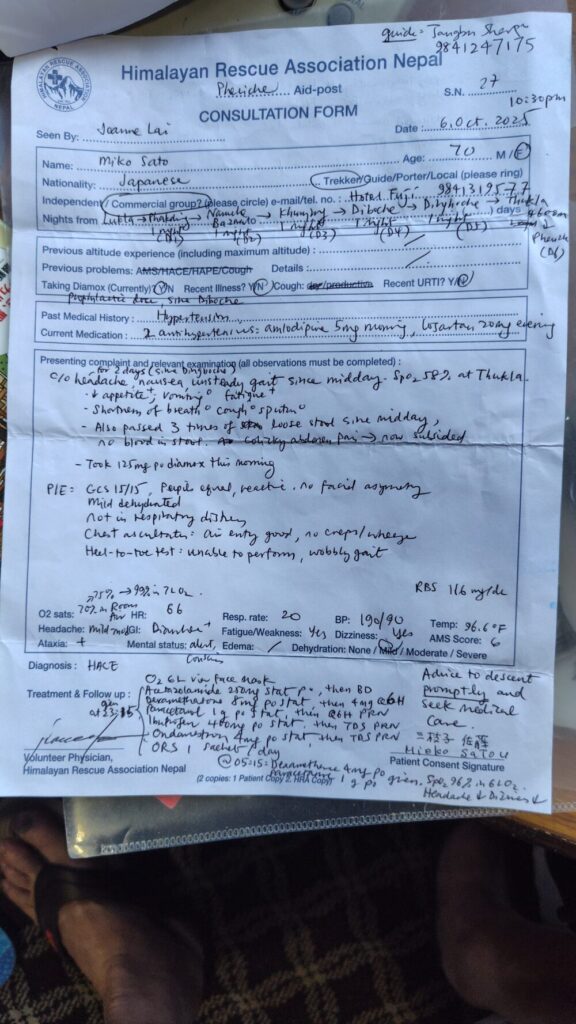 guide: Jangbu Sherpa
9841247175
HIMALAYAN RESCUE ASSOCIATION NEPAL
Himalayan Rescue Association Nepal
Pheriche Aid-post
S.N. 27
CONSULTATION FORM
10:30pm
Seen By: Joanne Lai
Date: 6. Oct. 2025
Name: Miko Sato
Age: 70 M / F
Nationality: Japanese
Trekker/Guide/Porter/Local (please ring)
Independent / Commercial group? (please circle) e-mail/tel. no.: Hotel Fuji 98413195 77
Nights from Lukla → → Namche → Khumjung → → → Thukla days 4600m
1 night (D1) 1 night (D2) (D3) 1 night (D4) 1 night (D5) Pheriche (D6)
Previous altitude experience (including maximum altitude):
Previous problems: AMS/HACE/HAPE/Cough Details:
Taking Diamox (Currently) Y/N Recent Illness? Y/N Cough: dry/productive Recent URTI? Y/N
Prophylactic dose, since Diboche
Past Medical History: Hypertension
Current Medication: 2 antihypertensives: amlodipine 5mg morning, losartan 20mg evening
Presenting complaint and relevant examination (all observations must be completed):
for 2 days (since Dingboche)
c/o headache, nausea, unsteady gait since midday. SpO2 58% at Thukla.
- ↓ appetite+, vomiting°, fatigue+
- Shortness of breath° cough° sputum°
- Also passed 3 times of loose stool since midday,
no blood in stool. colicky abdomen pain → now subsided
- Took 125mg po diamox this morning
P/E: GCS 15/15, Pupils equal, reactive. no facial asymmetry
Mild dehydrated
Not in respiratory distress
Chest auscultation: air entry good, no creps/wheeze
Heel-to-toe test: unable to perform, wobbly gait
RBS 116 mg/dl
75% → 99% in 7L O2
O2 sats: 70% in Room air HR: 66 Resp. rate: 20 BP: 190/90 Temp: 96.6°F
Headache: mild-mod GI: Diarrhea+ Fatigue/Weakness: Yes Dizziness: Yes AMS Score: 6
Ataxia: + Mental status: alert, Edema: / Dehydration: None / Mild / Moderate / Severe
Diagnosis: HACE
O2 6L via face mask
Treatment & Follow up: Acetazolamide 250mg stat po, then BD
given at 23:15
Dexamethasone 8mg po stat, then 4mg Q6H
Paracetamol 1g po stat, then Q6H PRN
Ibuprofen 400mg po stat, then TDS PRN
Ondansetron 4mg po stat then TDS PRN
ORS 1 sachet / day
Advice to descend
promptly and
seek medical
care.
Mieko SATOU
Volunteer Physician,
Himalayan Rescue Association Nepal
Patient Consent Signature
(2 copies: 1 Patient Copy 2. HRA Copy)
@ 05:15: Dexamethasone 4mg po
Paracetamol 1g po given. SpO2 96% in 6L O2.
Headache ↓ Dizziness ↓